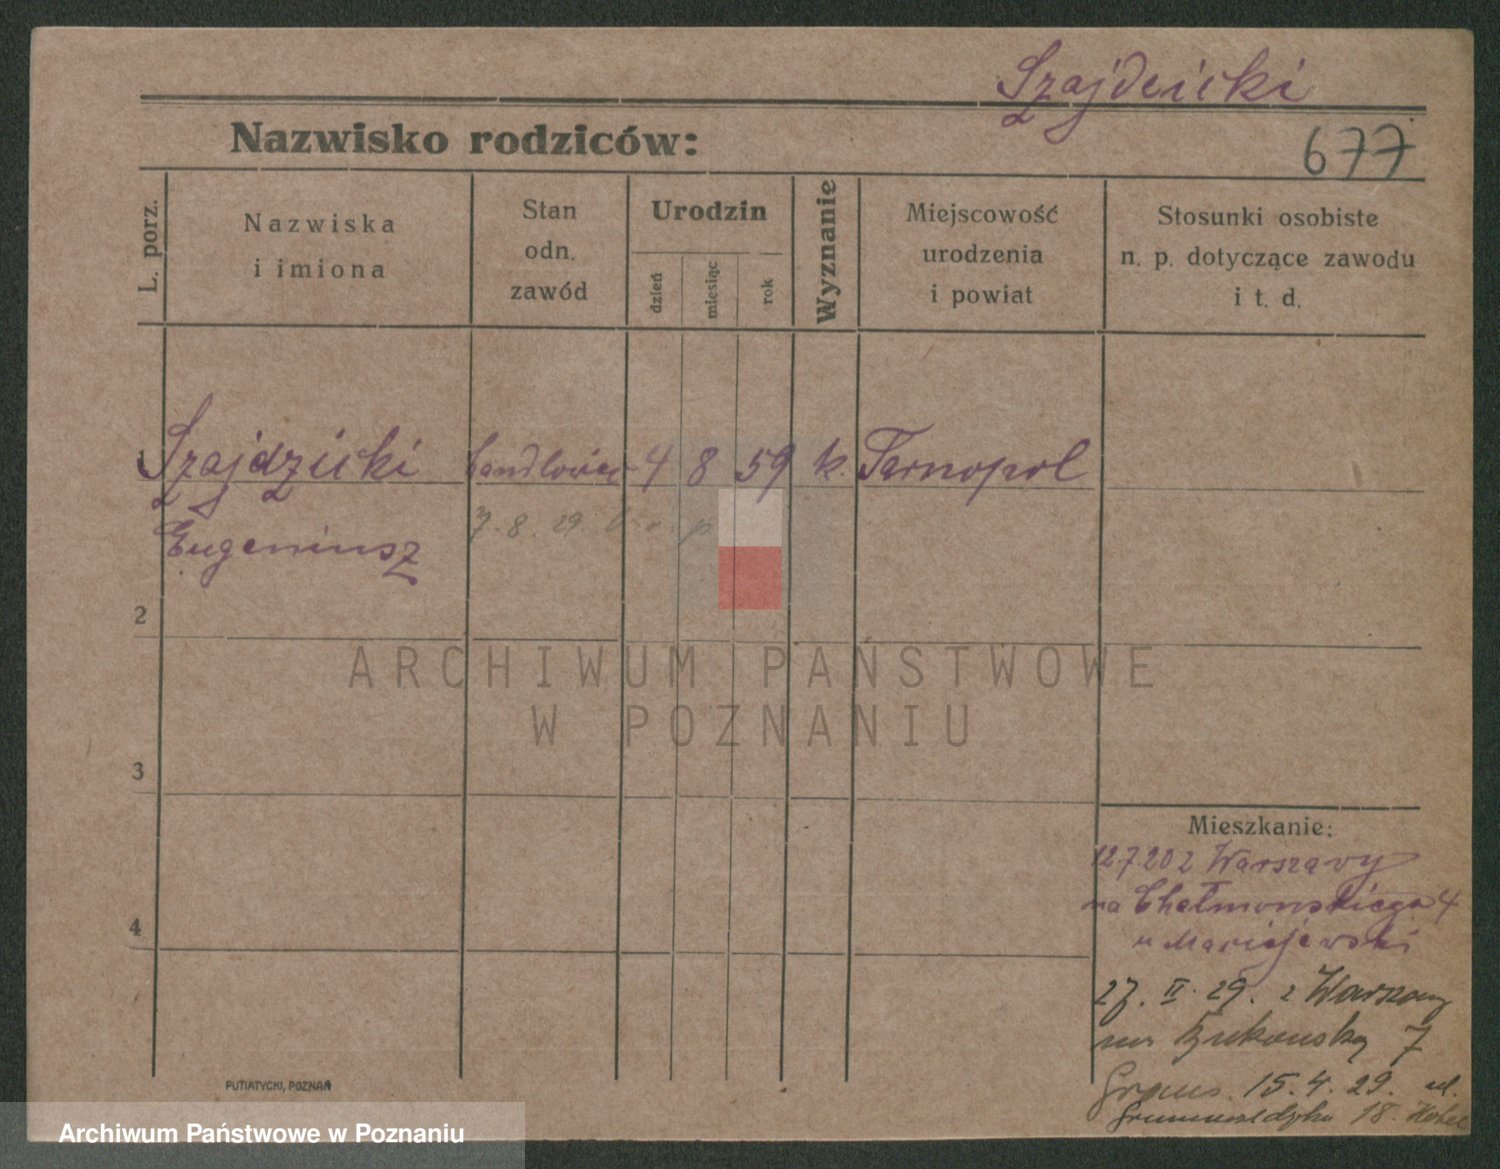 Szajdzicki
Nazwisko rodziców:
677
L. porz.
Nazwiska
i imiona
Stan
odn.
zawód
Urodzin
dzień
miesiąc
rok
Wyznanie
Miejscowość
urodzenia
i powiat
Stosunki osobiste
n. p. dotyczące zawodu
i t. d.
1 Szajdzicki handlowiec 4 8 59 k. Tarnopol
Eugeniusz
7. 8. 29.
2
ARCHIWUM PAŃSTWOWE
W POZNANIU
3
4
Mieszkanie:
12.7.20 z Warszawy
na Chełmońskiego 4
u Maciejewski
27. II. 29. z Warszawy
7
15. 4. 29.
18. Hotel
PUTIATYCKI, POZNAŃ
Archiwum Państwowe w Poznaniu